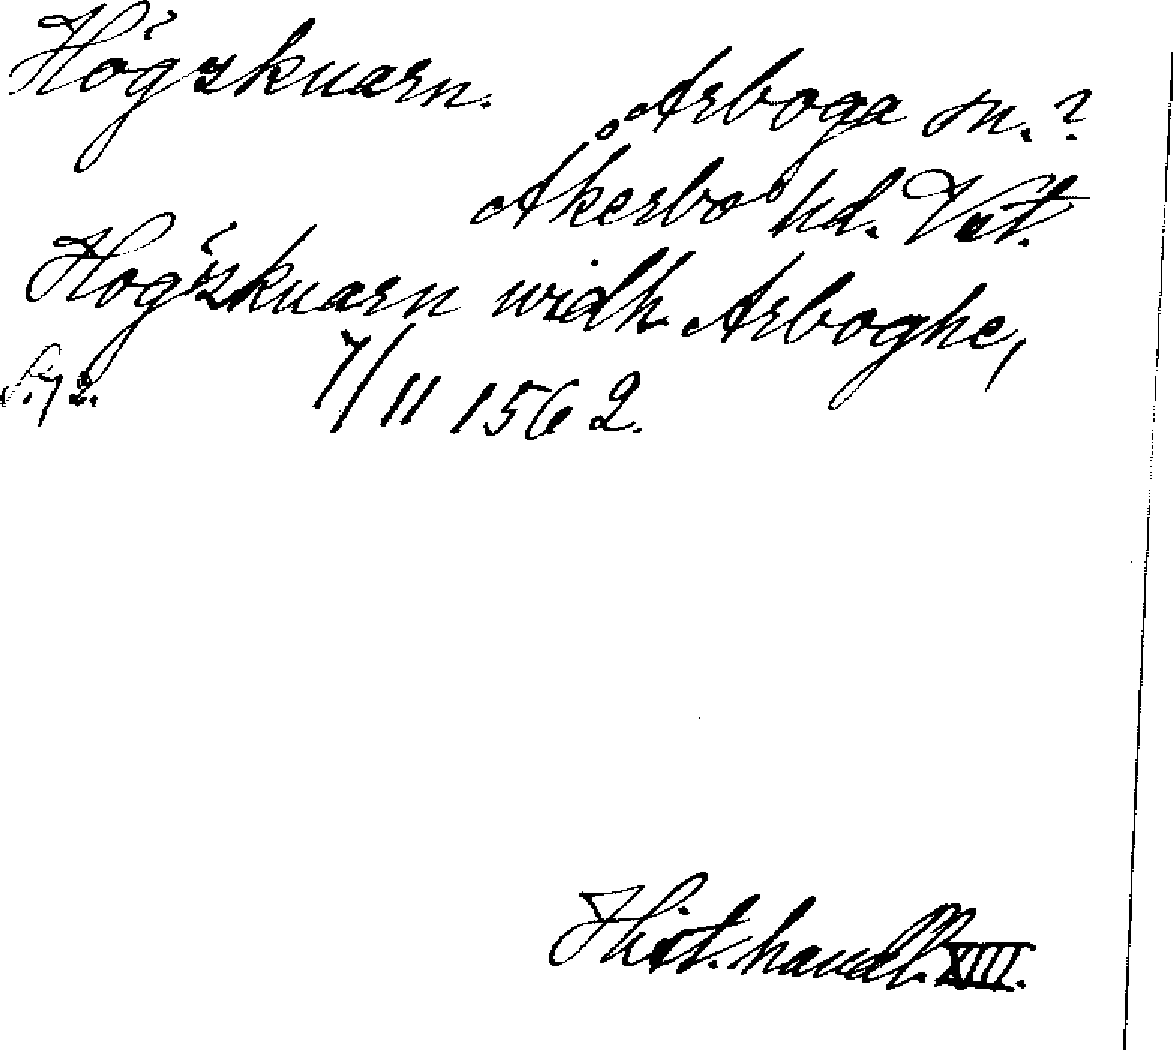 Högzkuarn. Arboga sn.?
Åkerbo hd. Vstm.
Högzkuarn widh Arboghe,
S. 72. 7/11 1562.
Hist. handl. XIII.